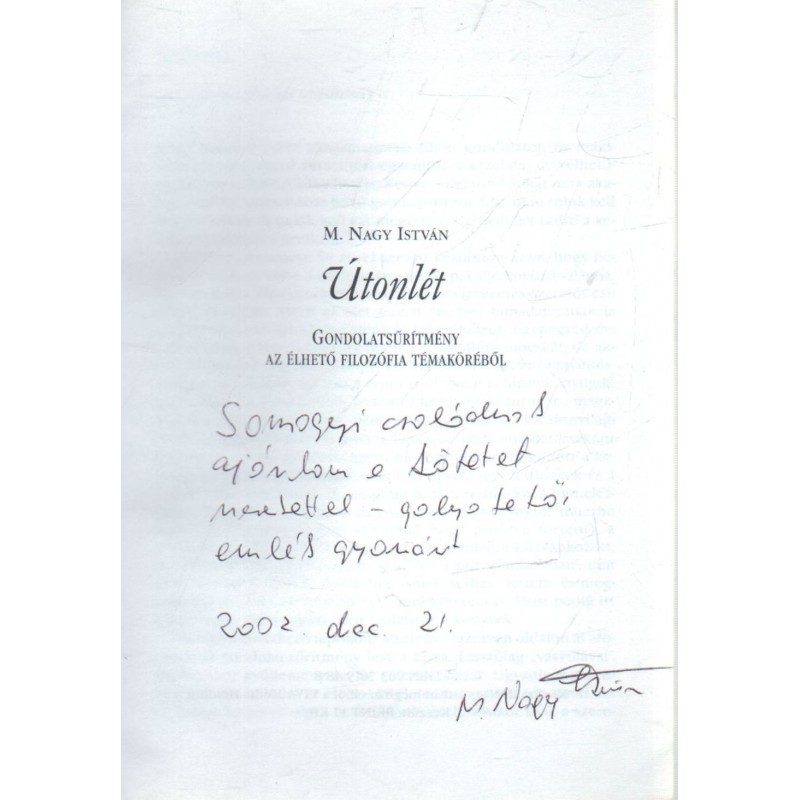 M. NAGY ISTVÁN
Útonlét
GONDOLATSŰRÍTMÉNY
AZ ÉLHETŐ FILOZÓFIA TÉMAKÖRÉBŐL
Somogyi családnak
ajánlom e kötetet
szeretettel – galyatetői
emlék gyanánt
2002 dec 21.
M. Nagy István